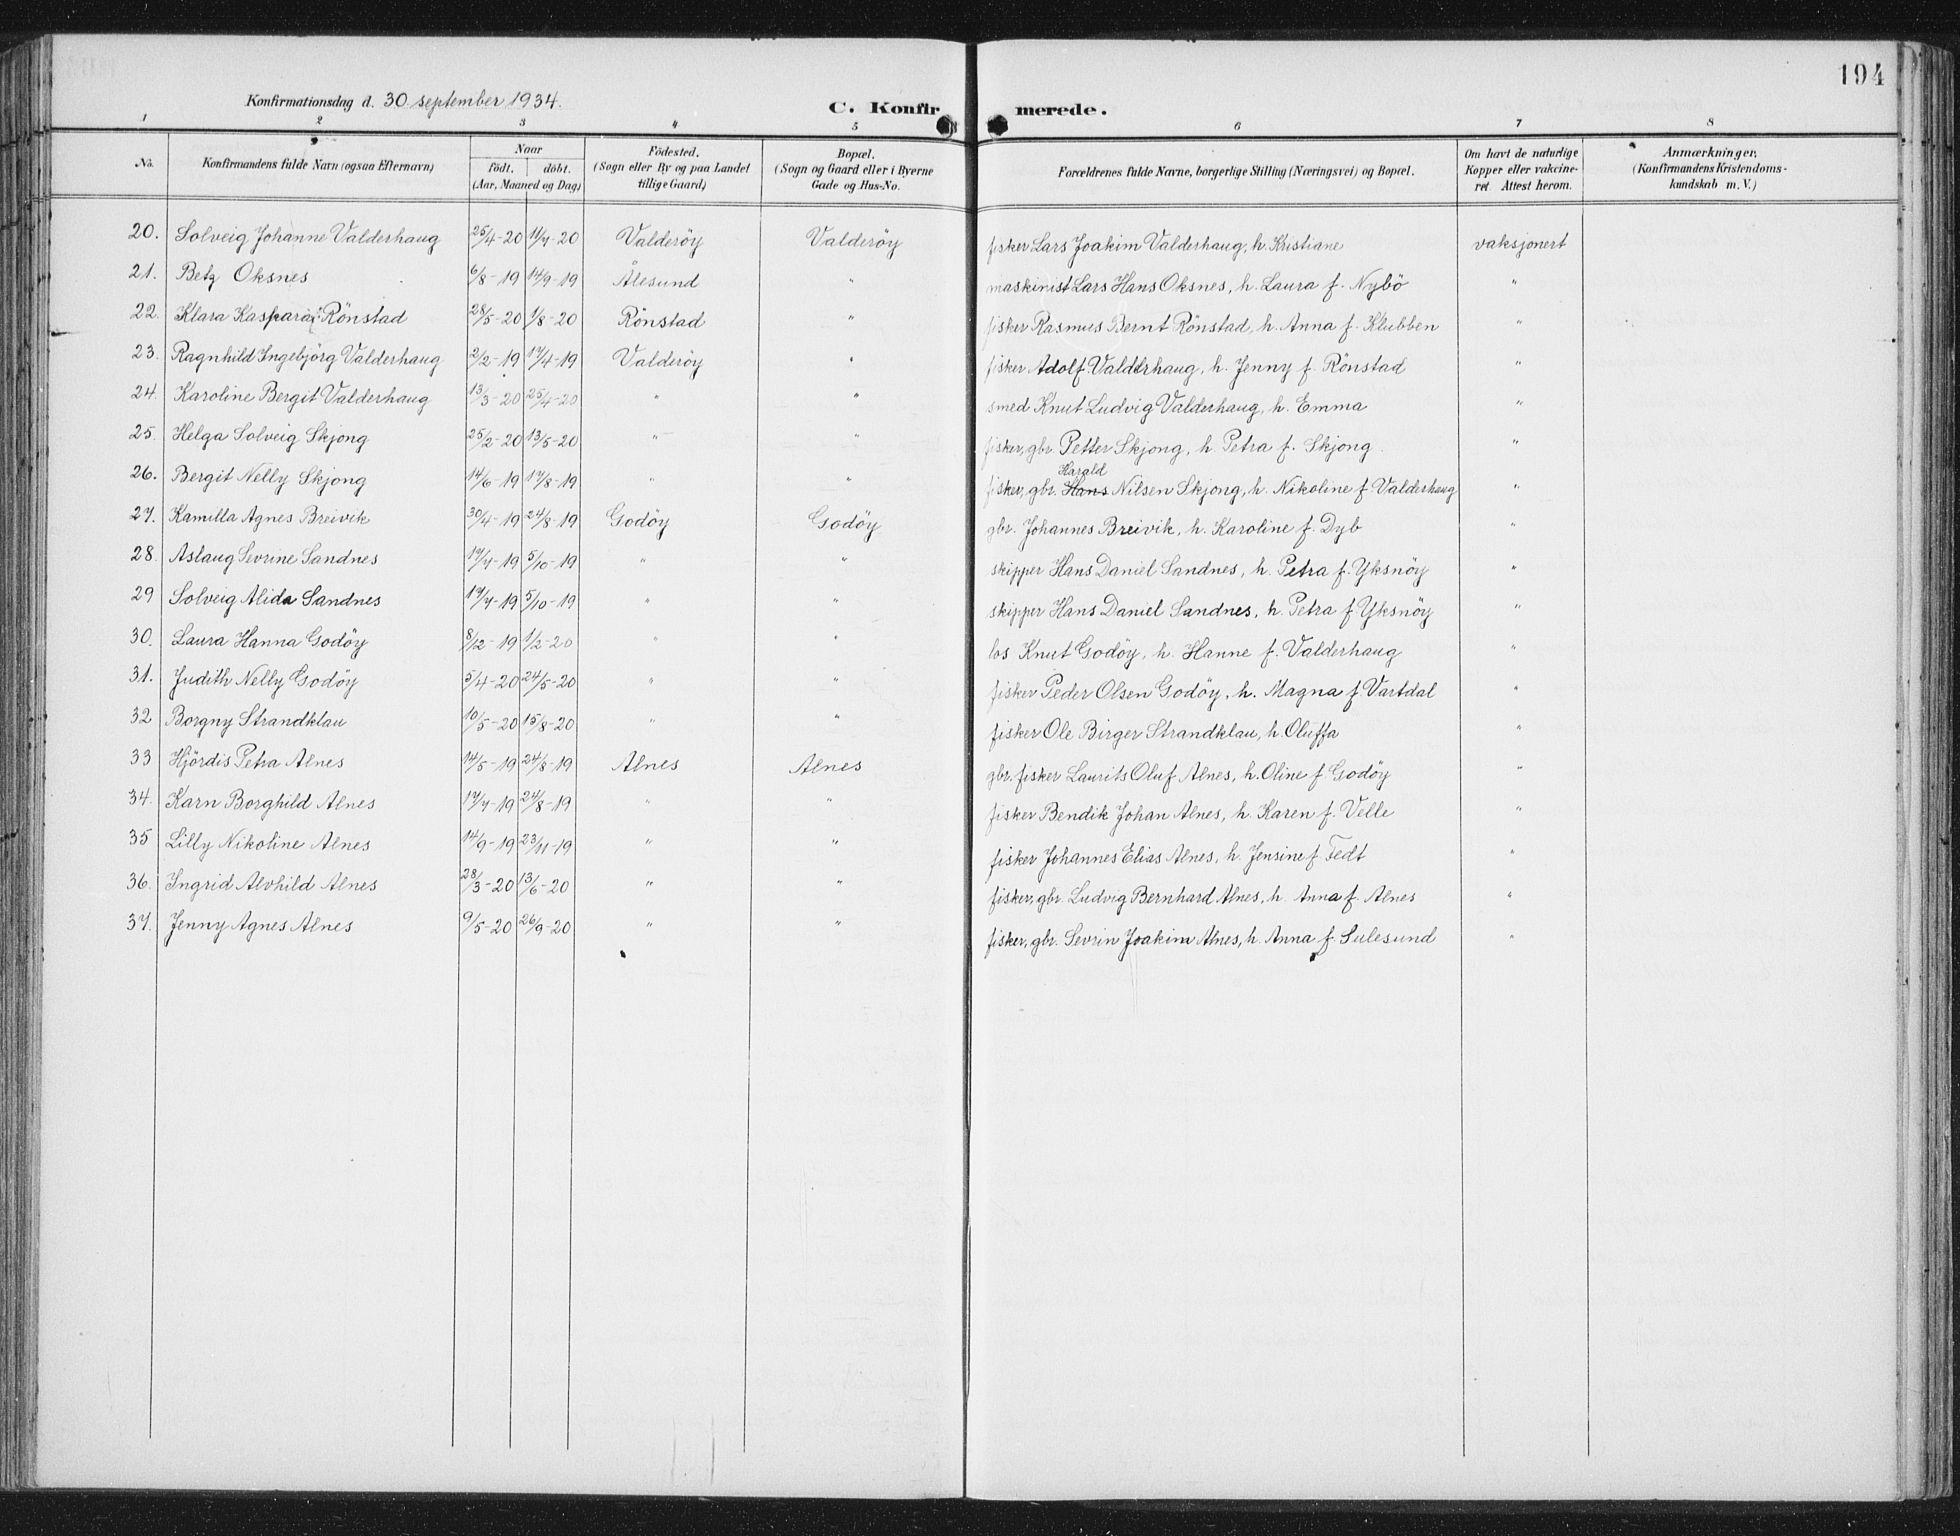 194
Konfirmationsdag d. 30. september 1934.
C. Konfirmerede.
1 2 3 4 5 6 7 8
No. Konfirmandens fulde Navn (ogsaa Efternavn) Naar födt. döbt. (Aar, Maaned og Dag) Födested. (Sogn eller By og paa Landet tillige Gaard) Bopæl. (Sogn og Gaard eller i Byerne Gade og Hus-No. Forældrenes fulde Navne, borgerlige Stilling (Næringsvei) og Bopæl. Om havt de naturlige Kopper eller vakcineret Attest herom. Anmærkninger, (Konfirmandens Kristendomskundskab m. V.)
20. Solveig Johanne Valderhaug 25/4-20 11/7-20 Valderöy Valderöy fisker Lars Joakim Valderhaug, h. Kristiane vaksjonert
21. Betz Oksnes 6/8-19 14/9-19 Ålesund " maskinist Lars Hans Oksnes, h. Laura f. Nybö "
22. Klara Kaspara Rönstad 28/5-20 1/8-20 Rönstad " fisker Rasmus Bernt Rönstad, h. Anna f. Klubben "
23. Ragnhild Ingebjörg Valderhaug 2/2-19 17/4-19 Valderöy " fisker Adolf Valderhaug, h. Jenny f. Rönstad "
24. Karoline Bergit Valderhaug 13/3-20 25/4-20 " " smed Knut Ludvig Valderhaug, h. Emma "
25. Helga Solveig Skjong 25/2-20 13/5-20 " " fisker, gbr. Petter Skjong, h. Petra f. Skjong. "
Harald
26. Bergit Nelly Skjong 14/6-19 17/8-19 " " fisker, gbr. Hans Nilsen Skjong, h. Nikoline f Valderhaug "
27. Kamilla Agnes Breivik 30/4-19 24/8-19 Godöy Godöy gbr. Johannes Breivik, h. Karoline f. Dyb "
28. Aslaug Sevrine Sandnes 17/7-19 5/10-19 " " skipper Hans Daniel Sandnes, h. Petra f. Yksnöy "
29 Solveig Alida Sandnes 17/7-19 5/10-19 " " skipper Hans Daniel Sandnes, h. Petra f Yksnöy "
30. Laura Hanna Godöy 8/12-19 1/2-20 " " los Knut Godöy, h. Hanne f. Valderhaug "
31. Judith Nelly Godöy 5/4-20 24/5-20 " " fisker Peder Olsen Godöy, h. Magna f Vartdal "
32 Borgny Strandklau 10/5-20 15/8-20 " " fisker Ole Birger Strandklau, h. Oluffa "
33 Hjördis Petra Alnes 14/5-19 24/8-19 Alnes Alnes gbr. fisker Laurits Oluf Alnes, h. Oline f Godöy "
34. Karn Borghild Alnes 17/7-19 24/8-19 " " fisker Bendik Johan Alnes, h. Karen f. Velle "
35 Lilly Nikoline Alnes 14/9-19 23/11-19 " " fisker Johannes Elias Alnes, h. Jensine f Fedt "
36. Ingrid Alvhild Alnes 28/3-20 13/6-20 " " fisker, gbr. Ludvig Bernhard Alnes, h. Anna f. Alnes "
37. Jenny Agnes Alnes 9/5-20 26/9-20 " " fisker, gbr. Sevrin Joakim Alnes, h. Anna f. Sulesund "